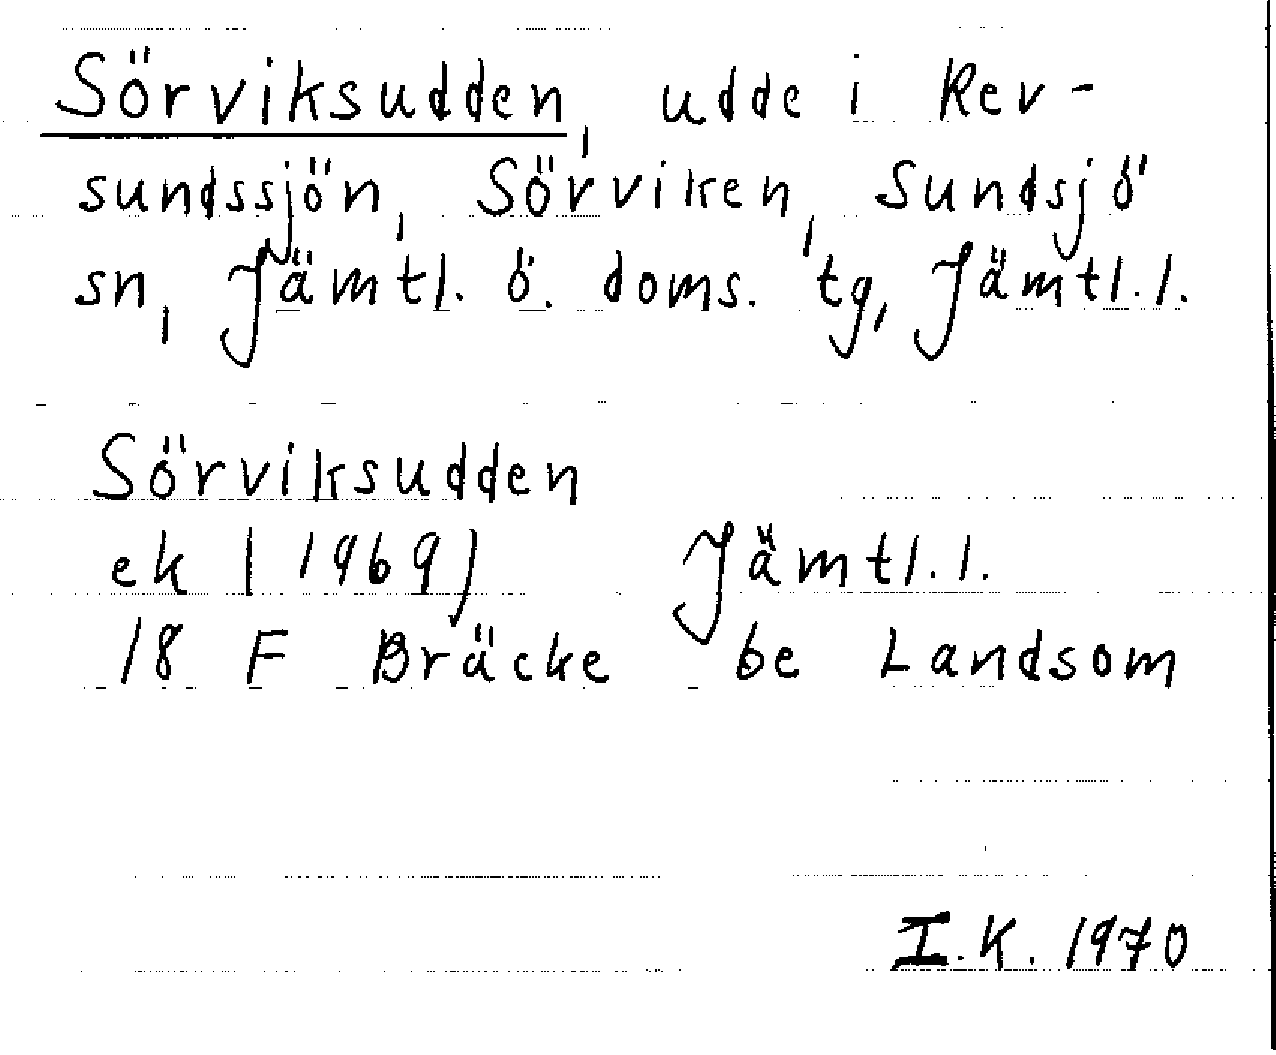 Sörviksudden, udde i Rev-
sundssjön, Sörviken, Sundsjö
sn, Jämtl. ö. doms. tg, Jämtl. l.
Sörviksudden
ek (1969) Jämtl. l.
18 F Bräcke be Landsom
I.K. 1970